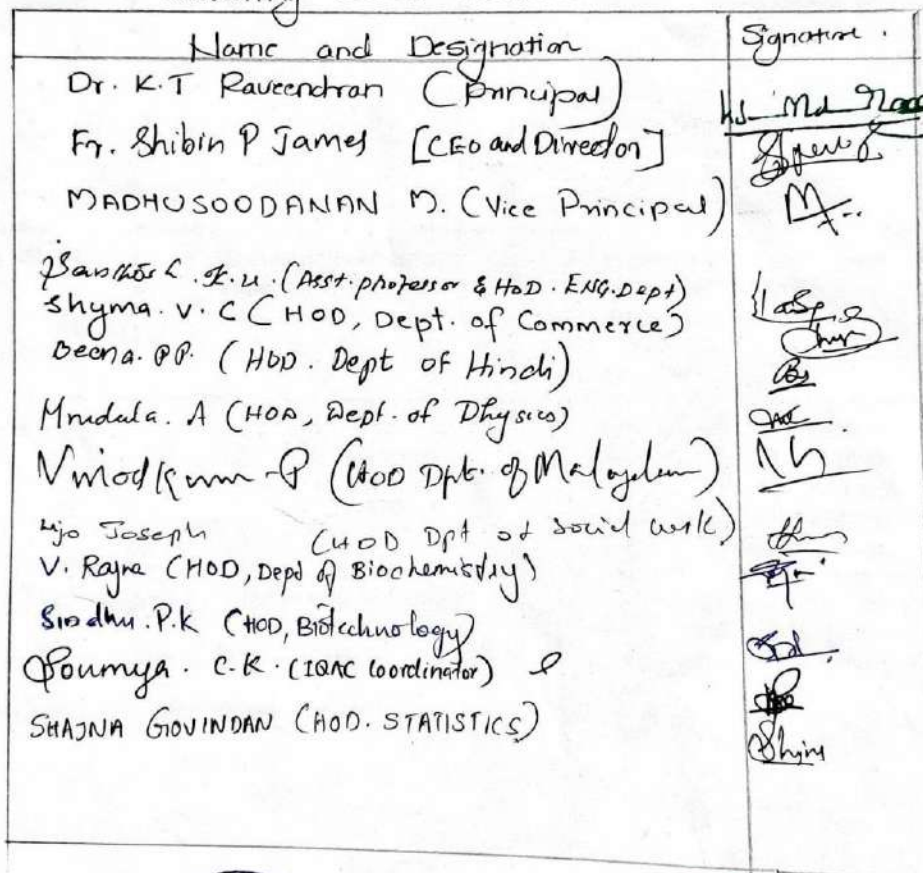 Name and Designation
Signature.
Dr. K.T Raveendran (Principal)
Fr. Shibin P James [CEO and Director]
MADHUSOODANAN M. (Vice Principal)
K.U. (Asst. professor & HOD. ENG. Dept)
Shyma. V. C (HOD, Dept. of Commerce)
Beena. PP. (HOD. Dept of Hindi)
Mrudula. A (HOD, Dept. of Physics)
(HOD Dpt. of Malayalam)
Joseph (HOD Dpt of Social work)
V. Rajna (HOD, Dept of Biochemistry)
Sindhu. P.K (HOD, Biotechnology)
Soumya. C.K. (IQAC Coordinator)
SHAJNA GOVINDAN (HOD. STATISTICS)